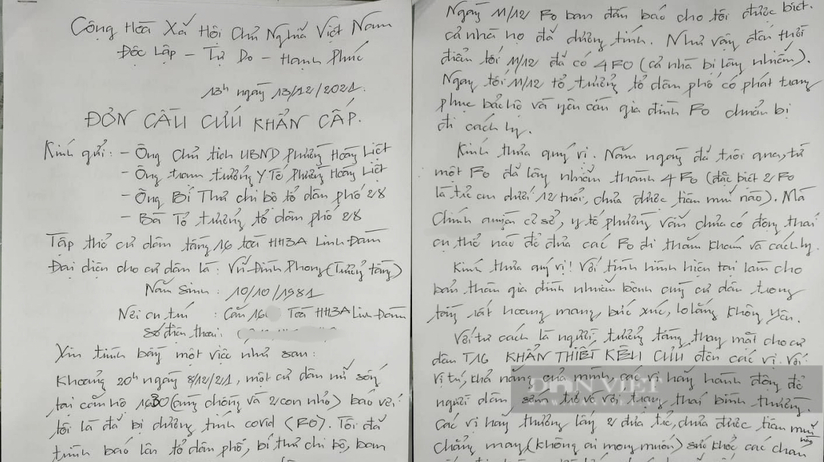 Cộng Hòa Xã Hội Chủ Nghĩa Việt Nam
Độc Lập - Tự Do - Hạnh Phúc
13h ngày 13/12/2021.
ĐƠN CẦU CỨU KHẨN CẤP.
Kính gửi: - Ông Chủ tịch UBND phường Hoàng Liệt
- Ông trạm trưởng Y Tế phường Hoàng Liệt
- Ông Bí Thư chi bộ tổ dân phố 28
- Bà Tổ trưởng tổ dân phố 28
Tập thể cư dân tầng 16 toà HH3A Linh Đàm
Đại diện cho cư dân là: Vũ Đình Phong (Trưởng tầng)
Năm sinh: 10/10/1981
Nơi cư trú: Căn 16 Toà HH3A Linh Đàm
Số điện thoại:
Xin trình bày một việc như sau:
Khoảng 20h ngày 8/12/21, một cư dân nữ sống
tại căn hộ 1630 (cùng chồng và 2 con nhỏ) báo với
tôi là đã bị dương tính covid (F0). Tôi đã
trình báo lên tổ dân phố, bí thư chi bộ, ban
Ngày 11/12 F0 ban đầu báo cho tôi được biết.
cả nhà họ đã dương tính. Như vậy đến thời
điểm tối 11/12 đã có 4 F0 (cả nhà bị lây nhiễm).
Ngay tối 11/12 tổ trưởng tổ dân phố có phát trang
phục bảo hộ và yêu cầu gia đình F0 chuẩn bị
đi cách ly.
Kính thưa quý vị. Năm ngày đã trôi qua, từ
một F0 đã lây nhiễm thành 4 F0 (đặc biệt 2 F0
là trẻ em dưới 12 tuổi, chưa được tiêm mũi nào). Mà
Chính quyền cơ sở, y tế phường vẫn chưa có động thái
cụ thể nào để đưa các F0 đi thăm khám và cách ly.
Kính thưa quý vị! Với tình hình hiện tại làm cho
bản thân gia đình nhiễm bệnh cùng cư dân trong
tầng rất hoang mang, bức xúc, lo lắng không yên.
Với tư cách là người trưởng tầng thay mặt cho cư
dân T16 KHẨN THIẾT KÊU CỨU đến các vị. Với
vị trí, khả năng của mình, các vị hãy hành động để
người dân sớm trở về với trạng thái bình thường.
Các vị hãy thương lấy 2 đứa trẻ, chưa được tiêm mũi nào
Chẳng may (không ai mong muốn) sức khỏe các cháu
DANVIET